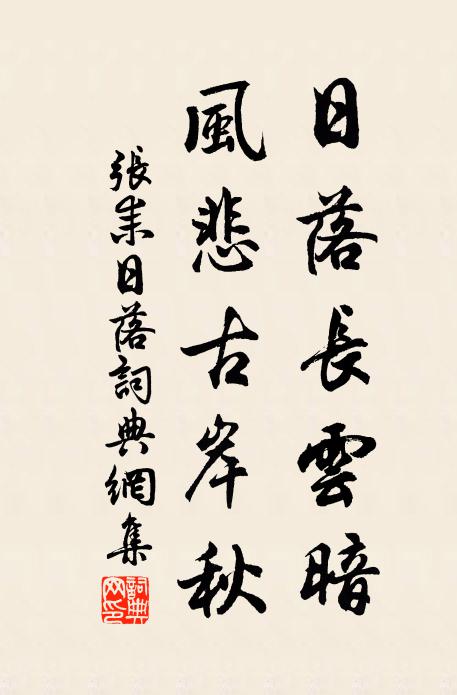 日落長雲暗
風悲古岸秋
張耒日落詞典網集
詞典網印